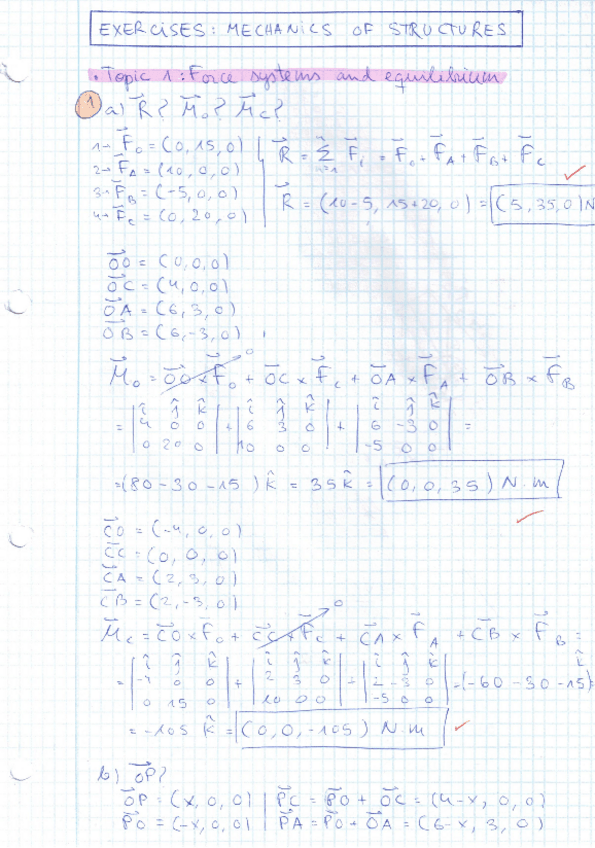 EXERCISES: MECHANICS OF STRUCTURES
• Topic 1: Force systems and equilibrium
1 a) R⃗? M⃗o? M⃗c?
1→ F⃗o = (0, 15, 0) | R⃗ = Σ F⃗i = F⃗o + F⃗A + F⃗B + F⃗C
2→ F⃗A = (10, 0, 0)
3→ F⃗B = (-5, 0, 0) | R⃗ = (10-5, 15+20, 0) = (5, 35, 0) N
4→ F⃗C = (0, 20, 0)
O⃗O = (0, 0, 0)
O⃗C = (4, 0, 0)
O⃗A = (6, 3, 0)
O⃗B = (6, -3, 0)
M⃗o = O⃗O × F⃗o + O⃗C × F⃗c + O⃗A × F⃗A + O⃗B × F⃗B
= |î ĵ k̂; 4 0 0; 0 20 0| + |î ĵ k̂; 6 3 0; 10 0 0| + |î ĵ k̂; 6 -3 0; -5 0 0| =
= (80 - 30 - 15) k̂ = 35 k̂ = (0, 0, 35) N·m
C⃗O = (-4, 0, 0)
C⃗C = (0, 0, 0)
C⃗A = (2, 3, 0)
C⃗B = (2, -3, 0)
M⃗c = C⃗O × F⃗o + C⃗C × F⃗c + C⃗A × F⃗A + C⃗B × F⃗B =
= |î ĵ k̂; -4 0 0; 0 15 0| + |î ĵ k̂; 2 3 0; 10 0 0| + |î ĵ k̂; 2 -3 0; -5 0 0| = (-60 - 30 - 15) k̂
= -105 k̂ = (0, 0, -105) N·m
b) O⃗P?
O⃗P = (x, 0, 0) | P⃗C = P⃗O + O⃗C = (4-x, 0, 0)
P⃗O = (-x, 0, 0) | P⃗A = P⃗O + O⃗A = (6-x, 3, 0)